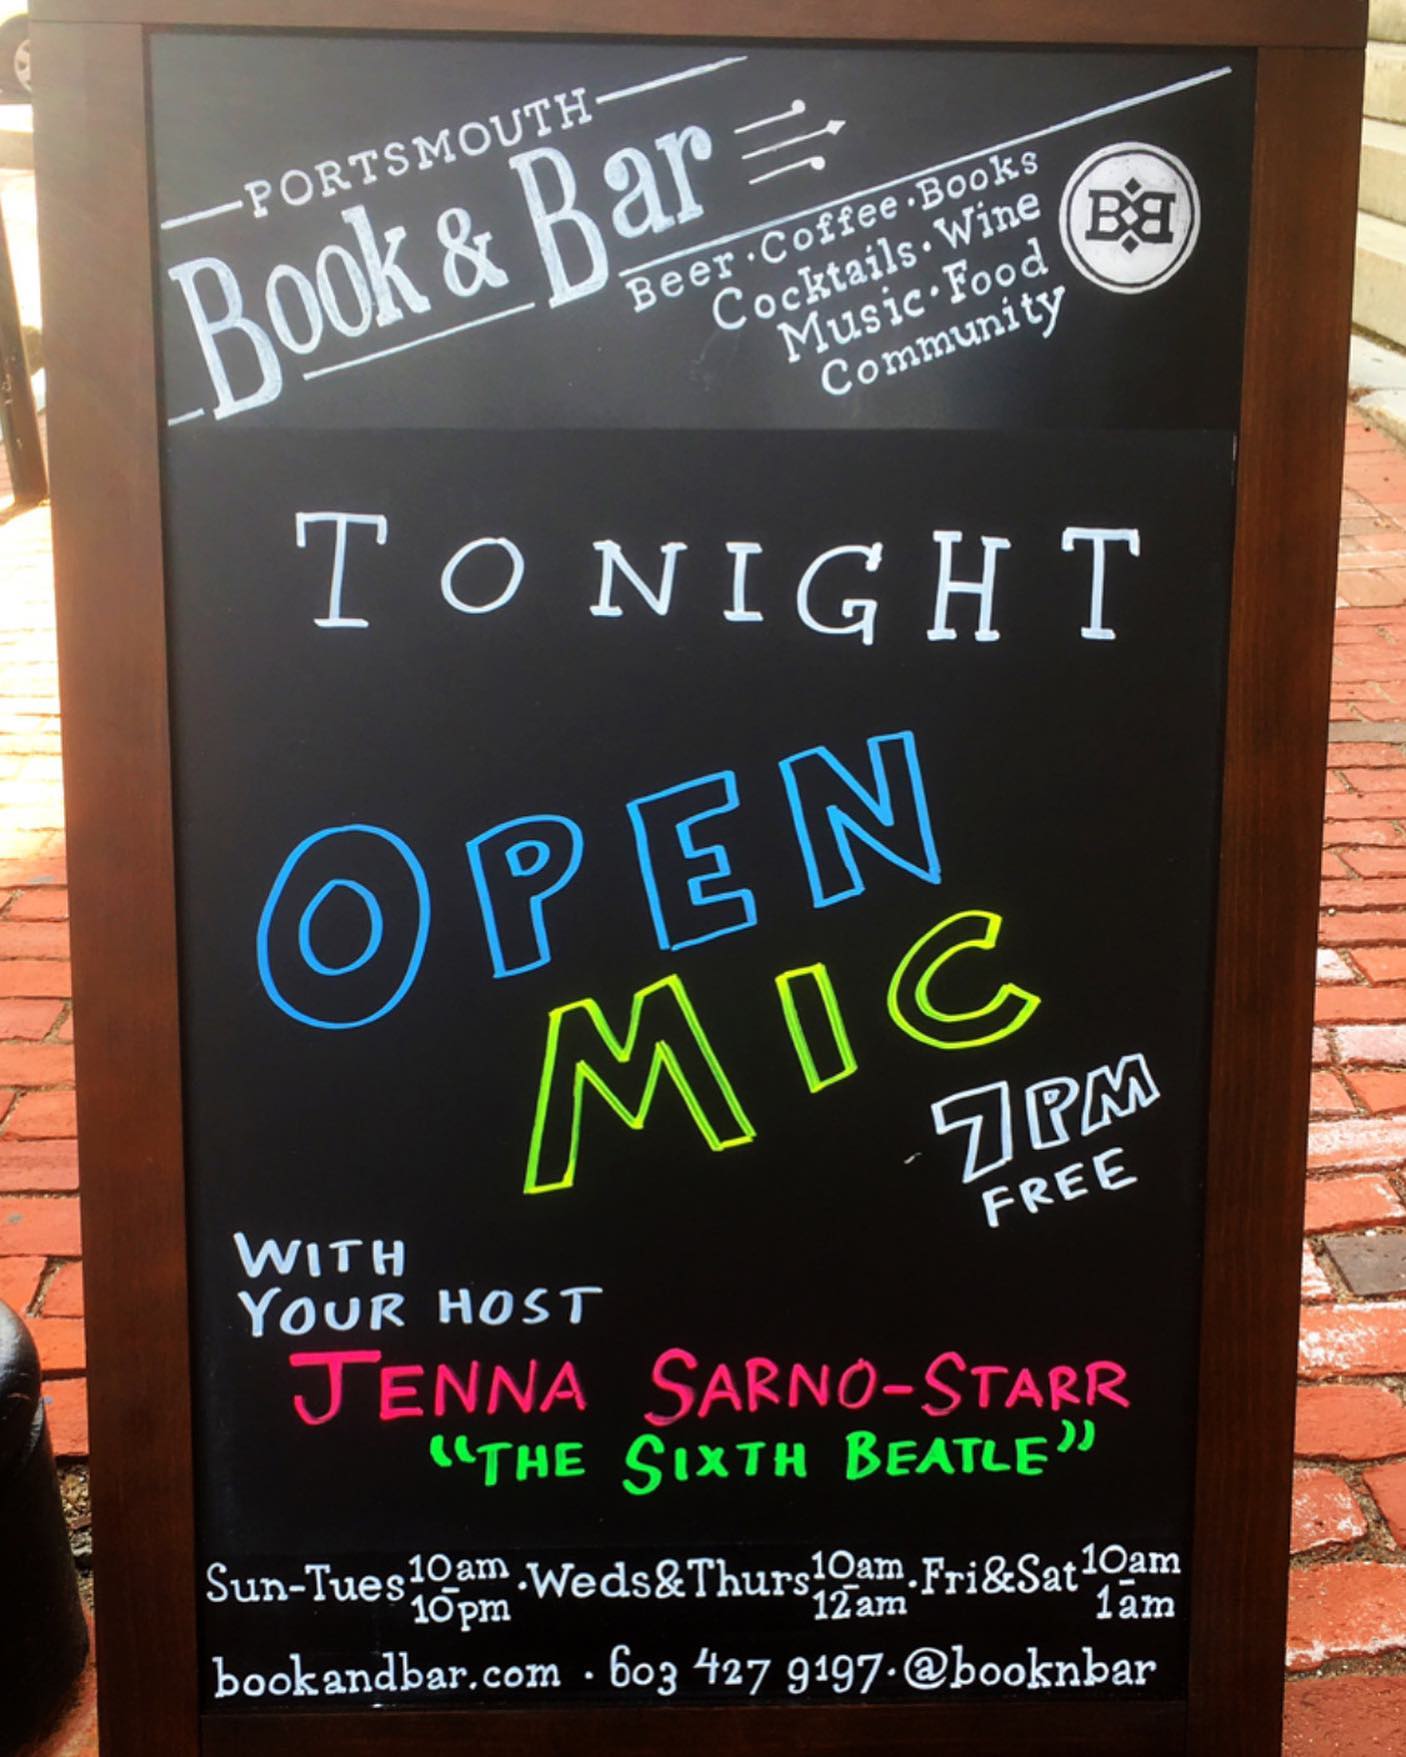 PORTSMOUTH
Book & Bar
Beer · Coffee · Books
Cocktails · Wine
Music · Food
Community
BB
TONIGHT
OPEN
MIC
7PM
FREE
WITH
YOUR HOST
JENNA SARNO-STARR
“THE SIXTH BEATLE”
Sun-Tues 10am-10pm · Weds&Thurs 10am-12am · Fri&Sat 10am-1am
bookandbar.com · 603 427 9197 · @booknbar